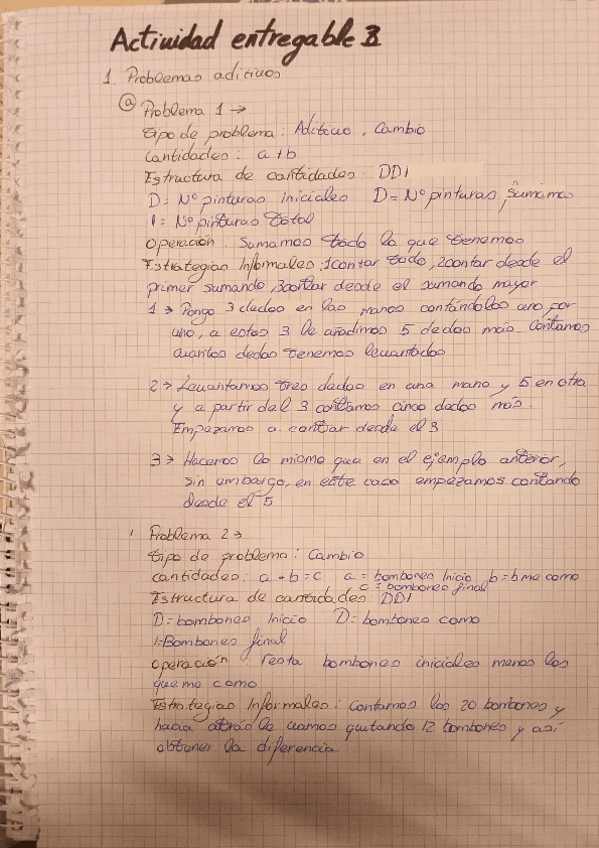 Actividad entregable 3
1. Problemas aditivos
a Problema 1 →
tipo de problema: Aditivo, Cambio
Cantidades: a + b
Estructura de cantidades: DDI
D = Nº pinturas iniciales D = Nº pinturas sumamos
I = Nº pinturas total
Operación: Sumamos todo lo que tenemos
Estrategias Informales: 1contar todo, 2contar desde el
primer sumando, 3contar desde el sumando mayor
1 → Pongo 3 dedos en las manos contándolos uno por
uno, a estos 3 le añadimos 5 dedos más. Contamos
cuantos dedos tenemos levantados
2 → Levantamos tres dedos en una mano y 5 en otra
y a partir del 3 contamos cinco dedos más.
Empezamos a contar desde el 3
3 → Hacemos lo mismo que en el ejemplo anterior,
sin embargo, en este caso empezamos contando
desde el 5
Problema 2 →
tipo de problema: Cambio
cantidades: a - b = c a = bombones Inicio b = b me como
c = bombones final
Estructura de cantidades DDI
D = bombones Inicio D = bombones como
I = Bombones final
Operación: resta bombones iniciales menos los
que me como
Estrategias Informales: Contamos los 20 bombones y
hacia atrás le vamos quitando 12 bombones y así
obtener la diferencia.